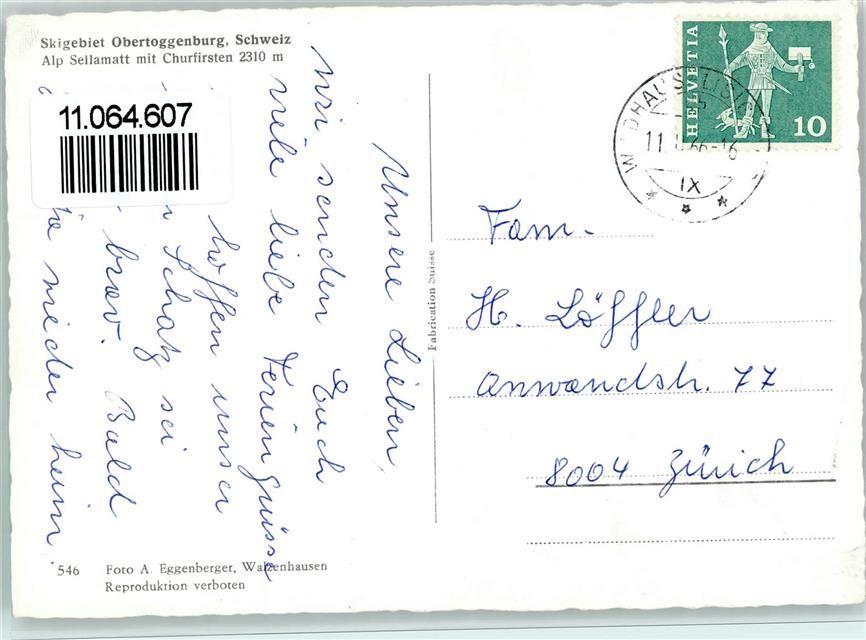 Skigebiet Obertoggenburg, Schweiz
Alp Sellamatt mit Churfirsten 2310 m
11.064.607
Unsere Lieben,
wir senden Euch
viele liebe Feriengrüsse
hoffen unser
Schatz sei
brav. Bald
wieder heim.
Fabrication Suisse
HELVETIA
10
WILDHAUS
IX
Fam.
H. Löffler
Anwandstr. 77
8004 Zürich
546 Foto A. Eggenberger, Walzenhausen
Reproduktion verboten